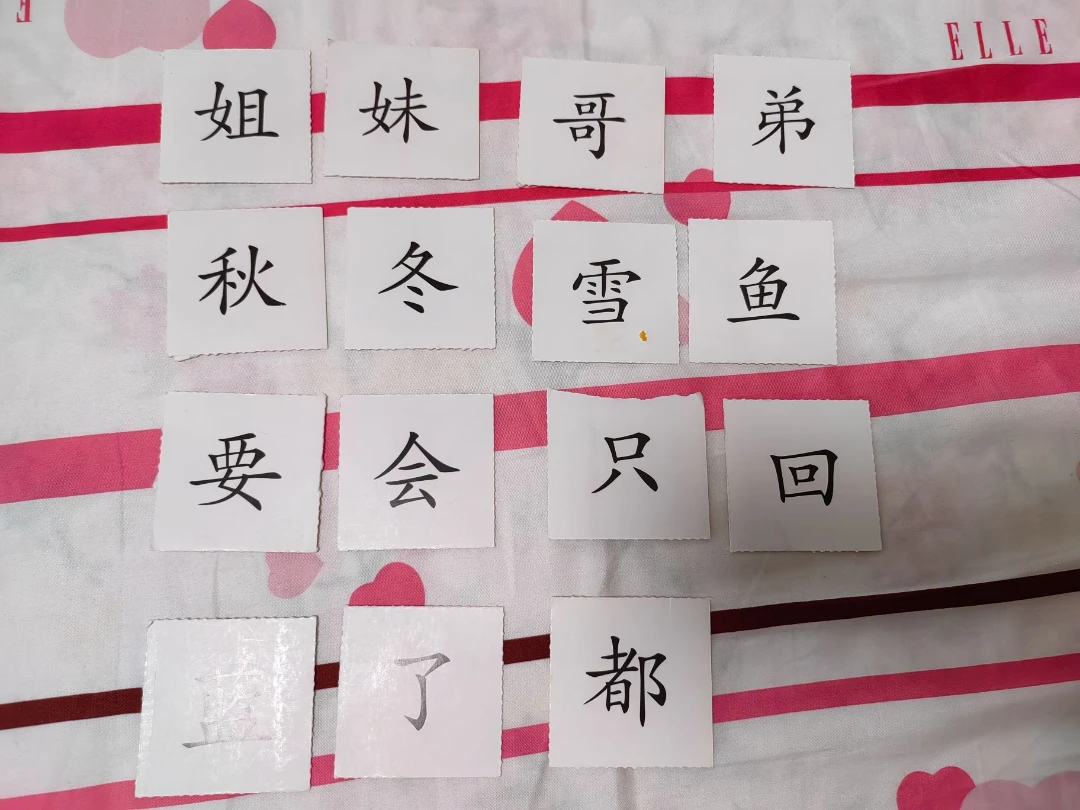 ELLE
姐 妹 哥 弟
秋 冬 雪 鱼
要 会 只 回
了 都